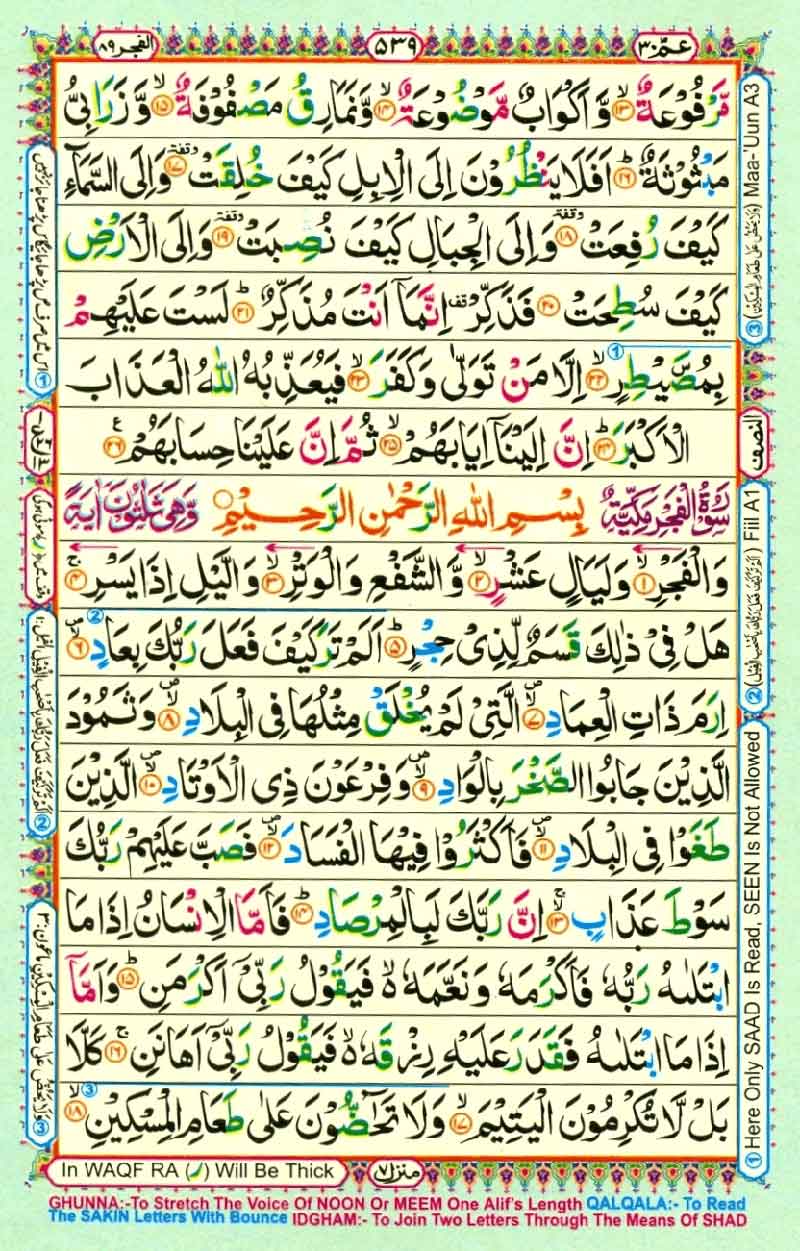 عمّ ٣٠
٥٣٩
الفجر ٨٩
مَّرْفُوْعَةٌ ۙ﴿۱۳﴾ وَّاَكْوَابٌ مَّوْضُوْعَةٌ ۙ﴿۱۴﴾ وَّنَمَارِقُ مَصْفُوْفَةٌ ۙ﴿۱۵﴾ وَّزَرَابِىُّ
مَبْثُوْثَةٌ ؕ﴿۱۶﴾ اَفَلَا يَنْظُرُوْنَ اِلَى الْاِبِلِ كَيْفَ خُلِقَتْ وقفة ﴿۱۷﴾ وَاِلَى السَّمَآءِ
كَيْفَ رُفِعَتْ وقفة ﴿۱۸﴾ وَاِلَى الْجِبَالِ كَيْفَ نُصِبَتْ وقفة ﴿۱۹﴾ وَاِلَى الْاَرْضِ
كَيْفَ سُطِحَتْ ﴿۲۰﴾ فَذَكِّرْ قف اِنَّمَاۤ اَنْتَ مُذَكِّرٌ ؕ﴿۲۱﴾ لَسْتَ عَلَيْهِمْ
بِمُصَۜيْطِرٍ ۙ﴿۲۲﴾ اِلَّا مَنْ تَوَلّٰى وَكَفَرَ ۙ﴿۲۳﴾ فَيُعَذِّبُهُ اللّٰهُ الْعَذَابَ
الْاَكْبَرَ ؕ﴿۲۴﴾ اِنَّ اِلَيْنَاۤ اِيَابَهُمْ ۙ﴿۲۵﴾ ثُمَّ اِنَّ عَلَيْنَا حِسَابَهُمْ ﴿۲۶﴾ ع
سُوْرَةُ الْفَجْرِ مَكِّيَّةٌ بِسْمِ اللّٰهِ الرَّحْمٰنِ الرَّحِيْمِ وَهِىَ ثَلٰثُوْنَ اٰيَةً
وَالْفَجْرِ ۙ﴿۱﴾ وَلَيَالٍ عَشْرٍ ۙ﴿۲﴾ وَّالشَّفْعِ وَالْوَتْرِ ۙ﴿۳﴾ وَالَّيْلِ اِذَا يَسْرِ ۚ﴿۴﴾
هَلْ فِىْ ذٰلِكَ قَسَمٌ لِّذِىْ حِجْرٍ ؕ﴿۵﴾ اَلَمْ تَرَ كَيْفَ فَعَلَ رَبُّكَ بِعَادٍ ۪ۙ﴿۶﴾
اِرَمَ ذَاتِ الْعِمَادِ ۪ۙ﴿۷﴾ الَّتِىْ لَمْ يُخْلَقْ مِثْلُهَا فِى الْبِلَادِ ۪ۙ﴿۸﴾ وَثَمُوْدَ
الَّذِيْنَ جَابُوا الصَّخْرَ بِالْوَادِ ۪ۙ﴿۹﴾ وَفِرْعَوْنَ ذِى الْاَوْتَادِ ۪ۙ﴿۱۰﴾ الَّذِيْنَ
طَغَوْا فِى الْبِلَادِ ۪ۙ﴿۱۱﴾ فَاَكْثَرُوْا فِيْهَا الْفَسَادَ ۪ۙ﴿۱۲﴾ فَصَبَّ عَلَيْهِمْ رَبُّكَ
سَوْطَ عَذَابٍ ۚۙ﴿۱۳﴾ اِنَّ رَبَّكَ لَبِالْمِرْصَادِ ؕ﴿۱۴﴾ فَاَمَّا الْاِنْسَانُ اِذَا مَا
ابْتَلٰىهُ رَبُّهٗ فَاَكْرَمَهٗ وَنَعَّمَهٗ ۙ۬ فَيَقُوْلُ رَبِّىْۤ اَكْرَمَنِ ؕ﴿۱۵﴾ وَاَمَّاۤ
اِذَا مَا ابْتَلٰىهُ فَقَدَرَ عَلَيْهِ رِزْقَهٗ ۙ۬ فَيَقُوْلُ رَبِّىْۤ اَهَانَنِ ۚ﴿۱۶﴾ كَلَّا
بَلْ لَّا تُكْرِمُوْنَ الْيَتِيْمَ ۙ﴿۱۷﴾ وَلَا تَحٰٓضُّوْنَ عَلٰى طَعَامِ الْمِسْكِيْنِ ۙ﴿۱۸﴾
③ (وَلَا يَحُضُّ عَلٰى طَعَامِ الْمِسْكِيْنِ) Maa-'Uun A3
النصف
② (اَلَمْ تَرَ كَيْفَ فَعَلَ رَبُّكَ بِاَصْحٰبِ الْفِيْلِ) Fiil A1
① Here Only SAAD Is Read, SEEN Is Not Allowed
In WAQF RA (ر) Will Be Thick
منزل ٧
GHUNNA:-To Stretch The Voice Of NOON Or MEEM One Alif's Length QALQALA:- To Read
The SAKIN Letters With Bounce IDGHAM:- To Join Two Letters Through The Means Of SHAD